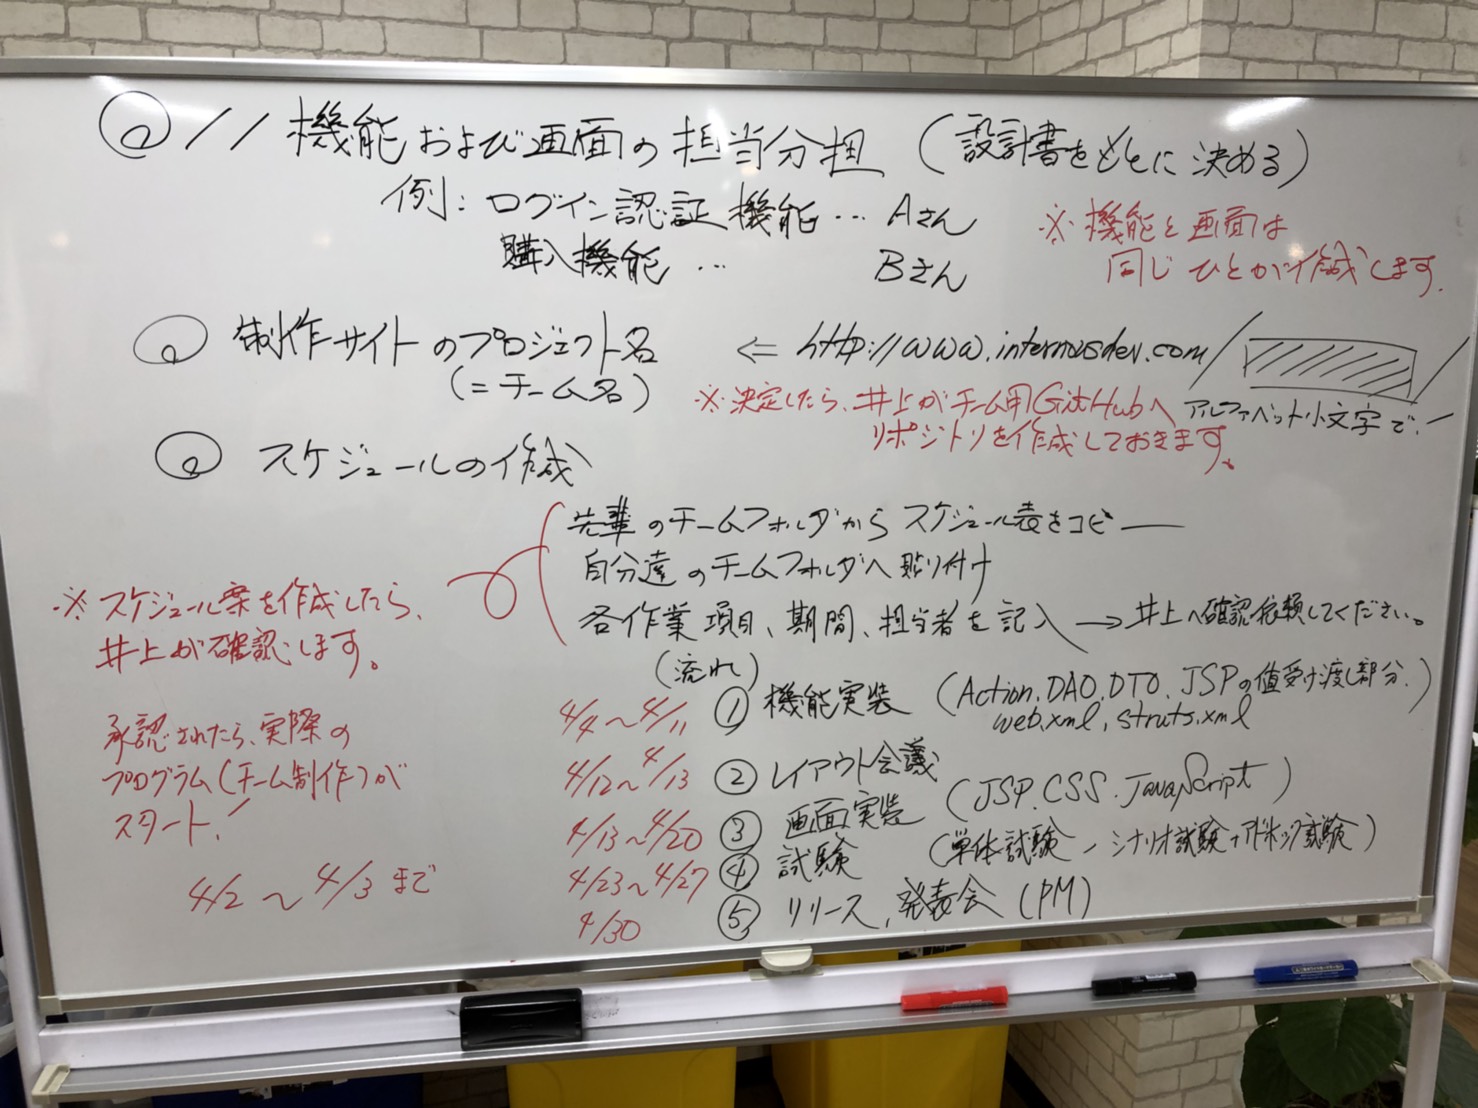 // 機能および画面の担当分担 (設計書をもとに決める)
例: ログイン認証機能… Aさん
購入機能 … Bさん
※ 機能と画面は
同じひとが作成します.
制作サイトのプロジェクト名 ⇐ http://www.internousdev.com/ /
(=チーム名)
アルファベット小文字で!
※ 決定したら、井上がチーム用GitHubへ
リポジトリを作成しておきます。
スケジュールの作成
先輩のチームフォルダからスケジュール表をコピー
自分達のチームフォルダへ貼り付け
各作業項目、期間、担当者を記入 → 井上へ確認依頼してください。
※ スケジュール案を作成したら、
井上が確認します。
承認されたら、実際の
プログラム(チーム制作)が
スタート!
4/2 〜 4/3 まで
(流れ)
4/4〜4/11 ① 機能実装 (Action.DAO.DTO.JSPの値受け渡し部分.
web.xml, struts.xml)
4/12〜4/13 ② レイアウト会議
4/13〜4/20 ③ 画面実装 (JSP.CSS.JavaScript)
4/23〜4/27 ④ 試験 (単体試験、シナリオ試験+アドホック試験)
4/30 ⑤ リリース、発表会 (PM)